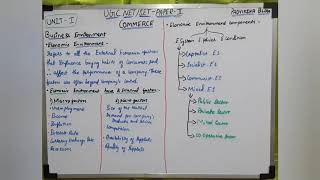 UGC NET/SET - PAPER - II
COMMERCE
UNIT - I
Business Environment
• Economic Environment -
Refers to all the External Economic factors
that influence buying habits of consumers and
∴ affect the performance of a company. These
factors are often beyond company's control.
• Economic Environment have 2 External factors -
1) Macro factors
• Unemployment
• Income
• Inflation
• Interest Rate
• Currency Exchange Rate
• Recession
2) Micro factors
Size of the Market
Demand for company's
Products and Services
Competition
Availability of Suppliers
Quality of Suppliers
• Economic Environment components -
E System E policies E condition
→ Capitalist ES
→ Socialist ES
→ Communist ES
→ Mixed ES
→ Public Sector
→ Private Sector
→ Joint Sector
→ Co-operative Sector